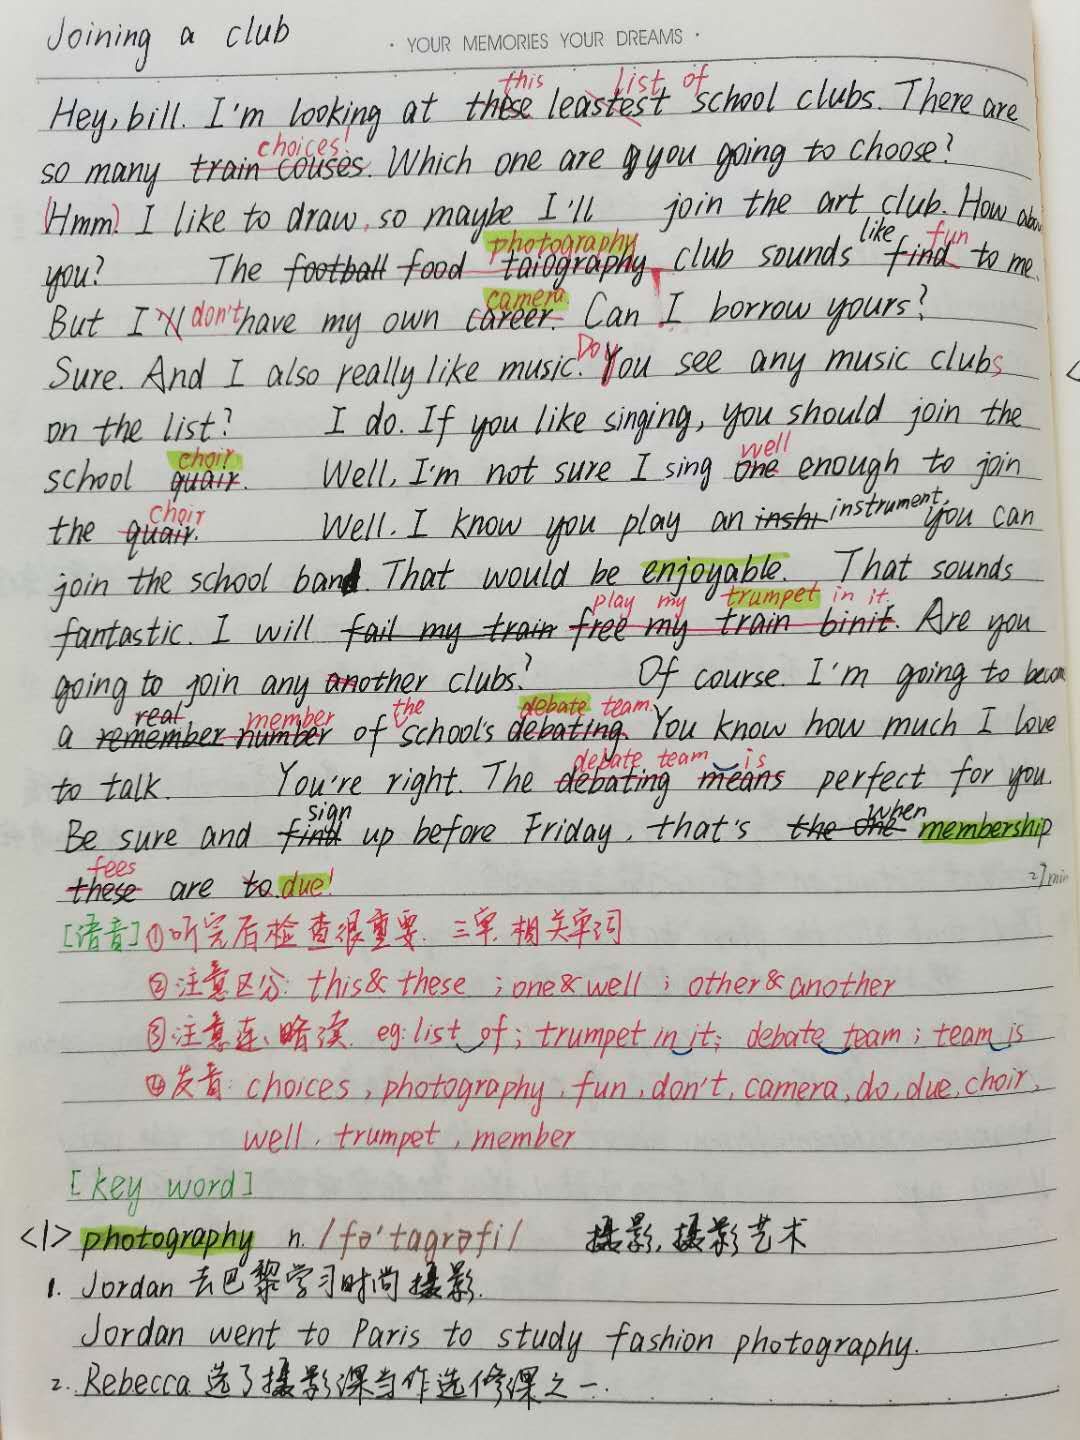 Joining a club
· YOUR MEMORIES YOUR DREAMS ·
this list of
Hey, bill. I'm looking at these leastest school clubs. There are
choices!
so many train couses. Which one are you going to choose?
(Hmm) I like to draw, so maybe I'll join the art club. How about
photography like fun
you? The football food taiography club sounds find to me.
camera
But I'll don't have my own career. Can I borrow yours?
Do
Sure. And I also really like music. You see any music clubs
on the list? I do. If you like singing, you should join the
choir well
school quair. Well, I'm not sure I sing one enough to join
choir
the quair. Well. I know you play an inshi instrument, you can
join the school band. That would be enjoyable. That sounds
play my trumpet in it.
fantastic. I will fail my train free my train binit. Are you
going to join any another clubs? Of course. I'm going to become
real member the debate team.
a remember number of school's debating. You know how much I love
debate team is
to talk. You're right. The debating means perfect for you.
sign when
Be sure and find up before Friday, that's the one membership
fees
these are to due!
27min
[语音] ①听完后检查很重要. 三单. 相关单词
②注意区分: this & these ; one & well ; other & another
③注意连、略读. eg: list of ; trumpet in it; debate team ; team is
④发音: choices, photography, fun, don't, camera, do, due, choir,
well, trumpet, member
[key word]
<1> photography n. /fə'tagrəfi/ 摄影, 摄影艺术
1. Jordan 去巴黎学习时尚摄影.
Jordan went to Paris to study fashion photography.
2. Rebecca 选了摄影课当作选修课之一.